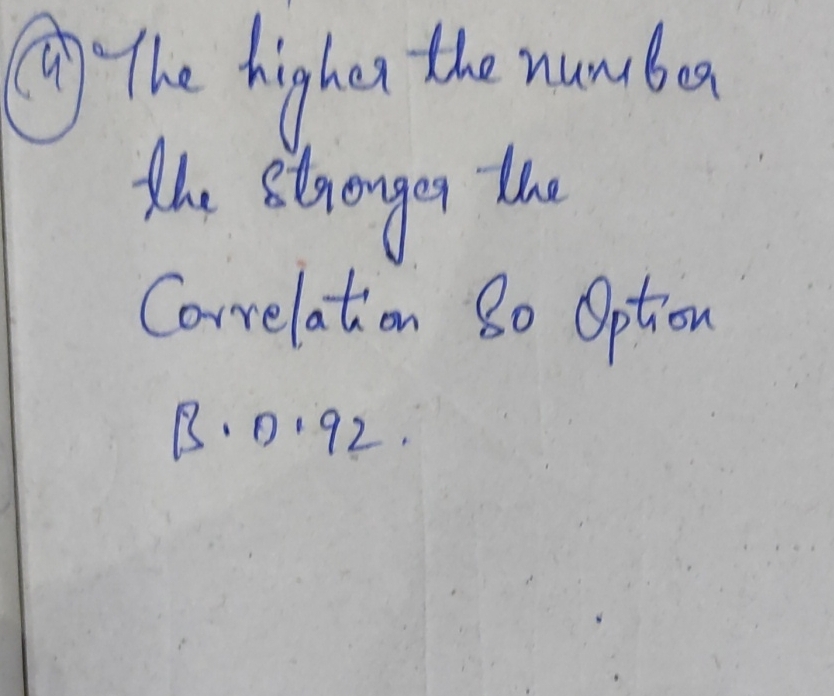 4) The higher the number
the stronger the
Correlation So Option
B. 0.92.